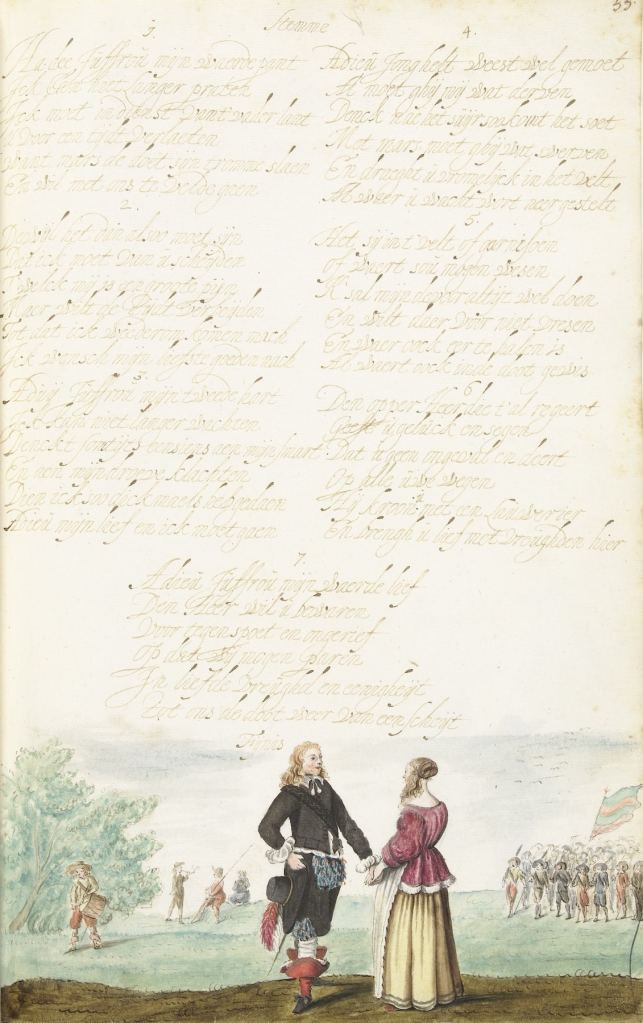 55.
Stemme
Adee Juffrou mijn waerde pant
Ick kan niet langer praten
Ick moet in dienst vant vader lant
U voor een tijdt verlaeten
Want mars de doet sijn tromme slaen
En wil met ons te velde gaen
2.
Dewijl het dan alsoo moet sijn
Dat ick moet van u scheijden
Twelck mij is een groote pijn
Maer wilt de tijdt verbijden
Tot dat ick wederom komen mach
Ick wensch mijn liefste goeden nach
3
Adieu Juffrou mijn tweede hart
Ick kan niet langer wachten
Denckt somtijts eens aen mijn smart
En aen mijn droeve klachten
Dien ick soo dick maels heb gedaen
Adieu mijn lief en ick moet gaen
4.
Adieu Jonghelt weest wel gemoet
Al moet ghij mij wat derven
Denck nae het suijr soo komt het soet
Met mars moet ghij wat swerven
En draeght u vromelijck in het velt
Al waer u wacht wort neer gestelt
5.
Het sij int velt of garnisoen
of waert sou mogen wesen
Ick sal mijn devoor altijt wel doen
En wilt daer voor niet vresen
En waer oock eer te halen is
Al waert oock inde doot gewis
6
Den opper Heer die 't al regeert
Geeft u geluck en segen
Dat u geen ongeval en deert
Op alle uwe wegen
Hij kroon u met een Lauwerier
En brengh u lief met vreughden hier
7.
Adieu Juffrou mijn waerde lief
Den Heer wil u bewaren
Voor tegenspoet en ongerief
Op dat wij mogen paren
In liefde vreughd en eenigheijt
Tot ons de doot weer van een scheijt
Fijnis